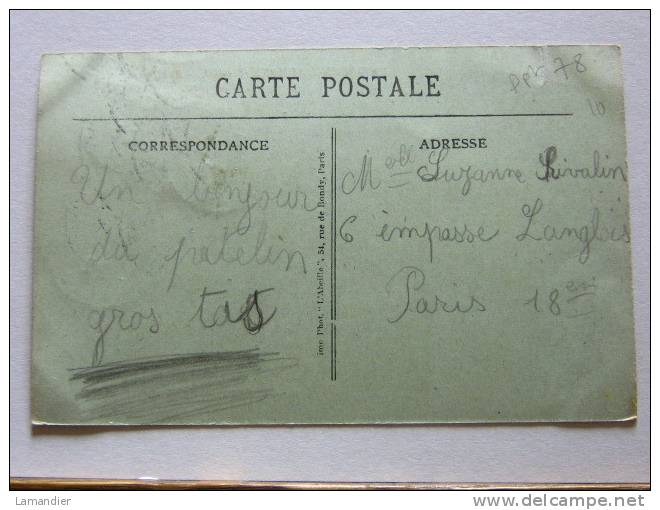 CARTE POSTALE
78
10
CORRESPONDANCE
Un bonjour
du patelin
gros tas
imp Phot. "L'Abeille", 54, rue de Bondy, Paris
ADRESSE
Melle Suzanne Rivalin
6 impasse Langlois
Paris 18
Lamandier
delcampe.net